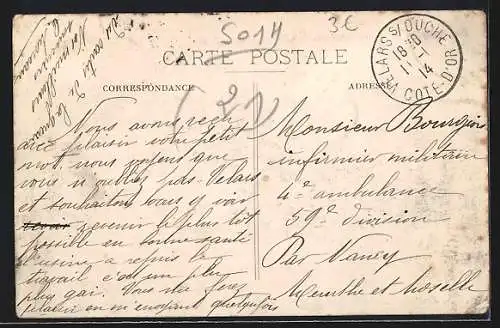 5014
3€
CARTE POSTALE
CORRESPONDANCE
ADRESSE
(21)
VELARS S/ OUCHE
18-30
11-1
14
COTE-D'OR
Nous avons reçu
avec plaisir votre petit
mot, nous voyons que
vous n'oubliez pas Velars
et souhaitons vous y voir
revenir le plus tôt
possible en bonne santé
L'usine a repris le
travail c'est un peu
plus gai. Vous me ferez
plaisir en m'envoyant quelquefois
des cartes de
Monsieur Bourgeois
infirmier militaire
4e ambulance
59e division
Par Nancy
Meurthe et Moselle